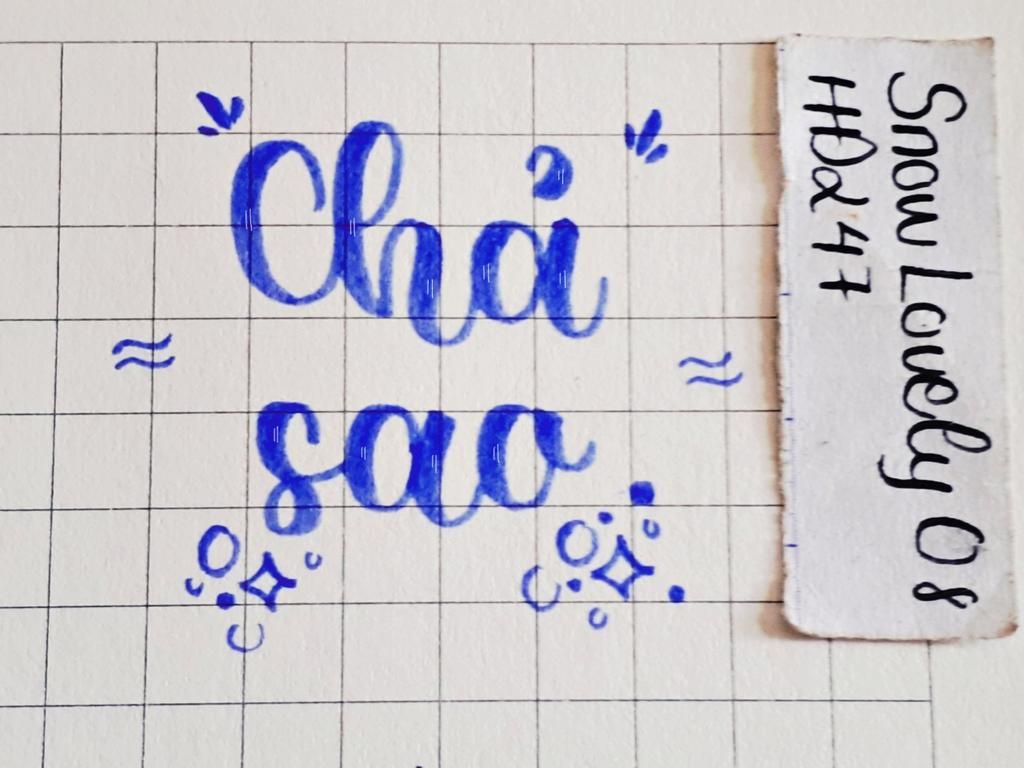 Chả
sao
Snow Lovely 08
HD247